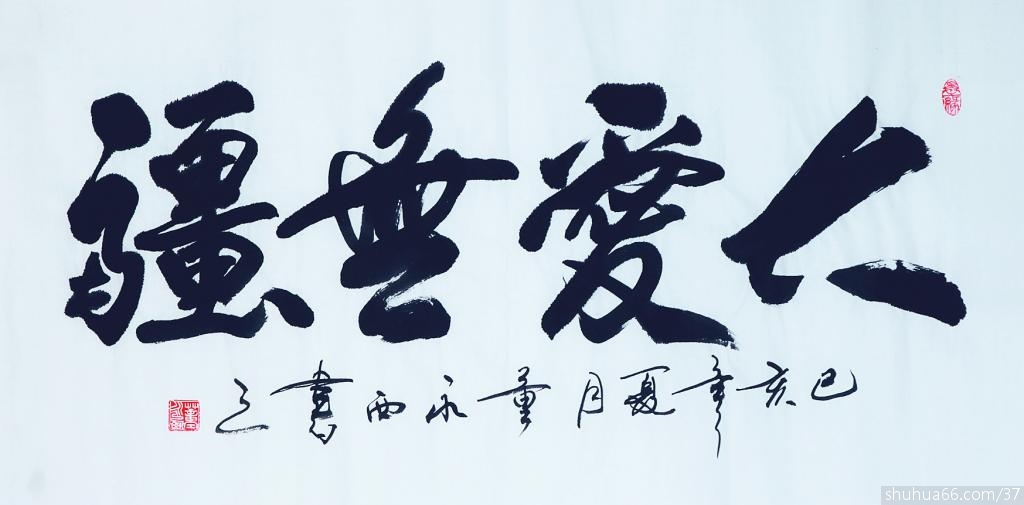 大愛無疆
己亥年夏月董永西書之
shuhua66.com/37